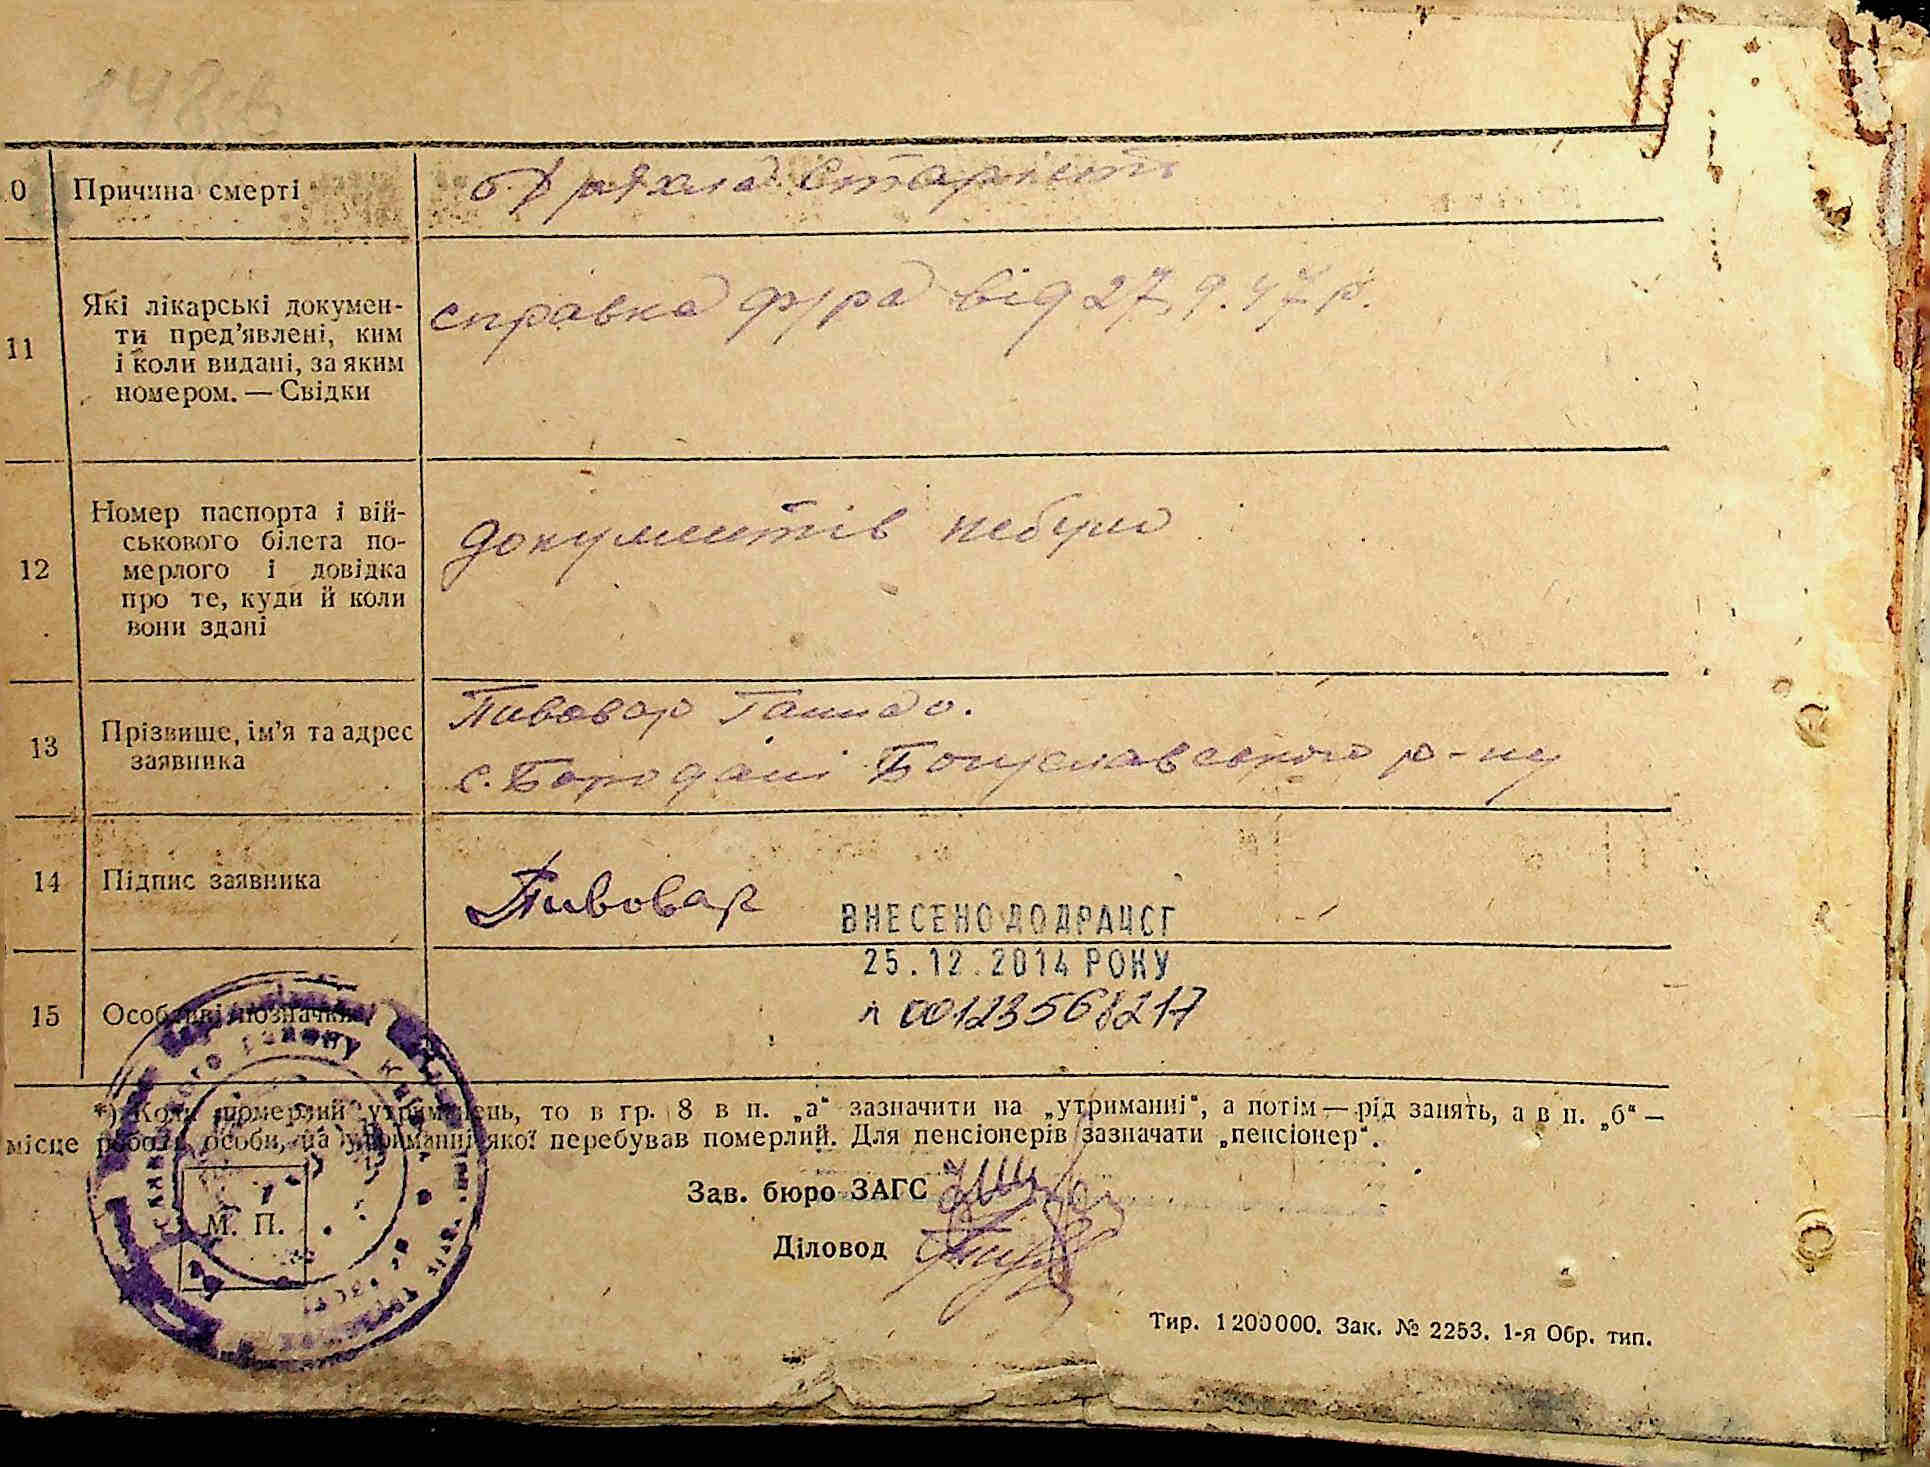 148
0 Причина смерті
старість
11 Які лікарські докумен-
ти пред'явлені, ким
і коли видані, за яким
номером. — Свідки
справка ф/ра від 27.9.47 р.
12 Номер паспорта і вій-
ськового білета по-
мерлого і довідка
про те, куди й коли
вони здані
документів небуло
13 Прізвище, ім'я та адрес
заявника
Пивовар
с. Бородані Богуславського р-ну
14 Підпис заявника
Пивовар
ВНЕСЕНО ДО ДРАЦСГ
25.12.2014 РОКУ
15 Особливі позначки
00123568217
*) Коли померлий утриманець, то в гр. 8 в п. „а“ зазначити на „утриманні“, а потім — рід занять, а в п. „б“ —
місце роботи особи, на утриманні якої перебував померлий. Для пенсіонерів зазначати „пенсіонер“.
Зав. бюро ЗАГС
М. П.
Діловод
Тир. 1200000. Зак. № 2253. 1-я Обр. тип.